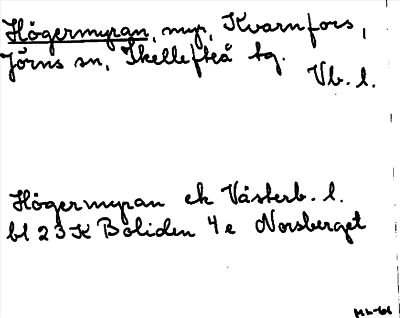 Högermyran, myr, Kvarnfors,
Jörns sn, Skellefteå tg.
Vb. l.
Högermyran ek Västerb. l.
bl 23K Boliden 4e Norsberget